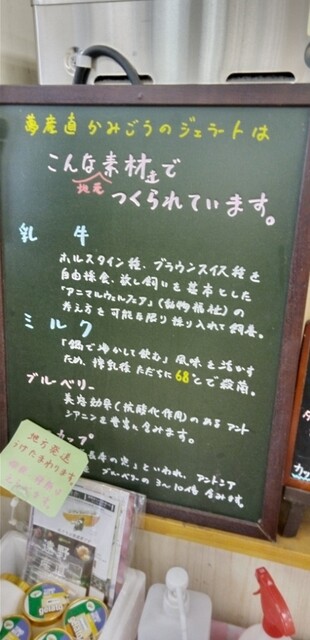 夢産直かみごうのジェラートは
こんな素材達で
地元
つくられています。
乳牛
ホルスタイン種、ブラウンスイス種を
自由採食、放し飼いを基本とした
「アニマルウェルフェア」(動物福祉)の
考え方を可能な限り採り入れて飼養。
ミルク
「鍋で沸かして飲む」風味を活かす
ため、搾乳後ただちに68℃で殺菌。
ブルーベリー
美容効果(抗酸化作用)のあるアント
シアニンを豊富に含みます。
カップ
といわれ、アントシア
ブルーベリーの3〜10倍含みます
地方発送
うけたまわります。